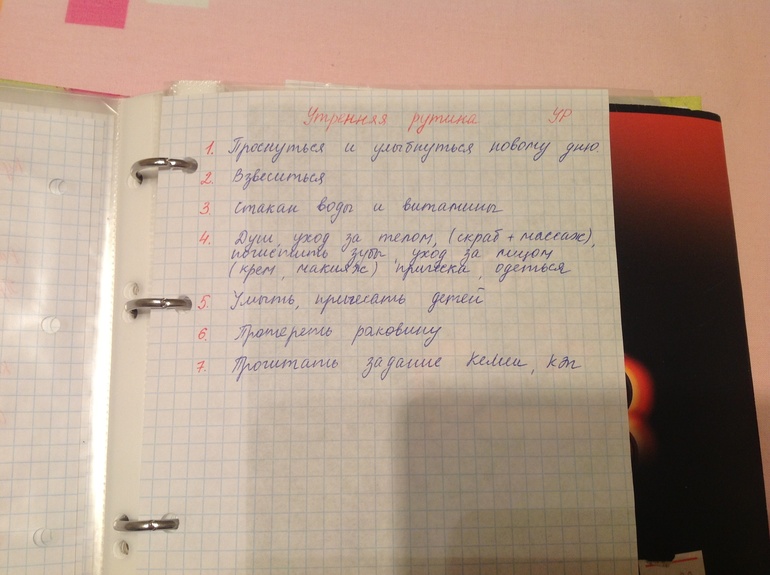 Утренняя рутина УР
1. Проснуться и улыбнуться новому дню.
2. Взвеситься
3. Стакан воды и витамины
4. Душ, уход за телом, (скраб + массаж),
почистить зубы, уход за лицом
(крем, макияж) прическа, одеться
5. Умыть, причесать детей
6. Протереть раковину
7. Прочитать задание Келли, кэп